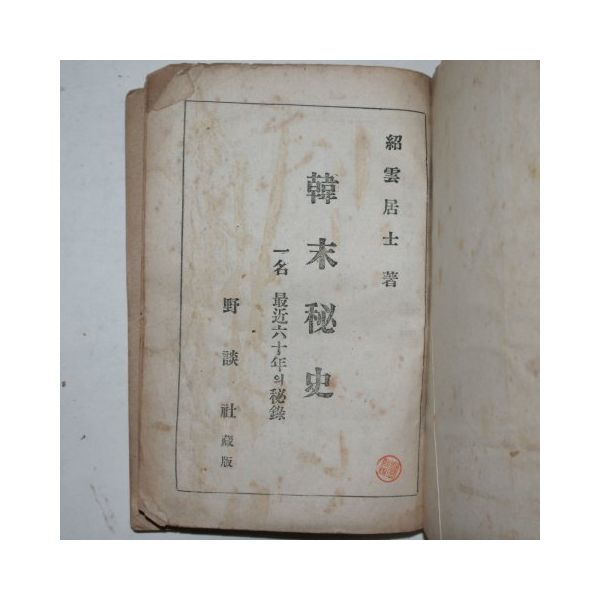 紹雲居士 著
韓末秘史
一名 最近六十年의秘錄
野談社藏版